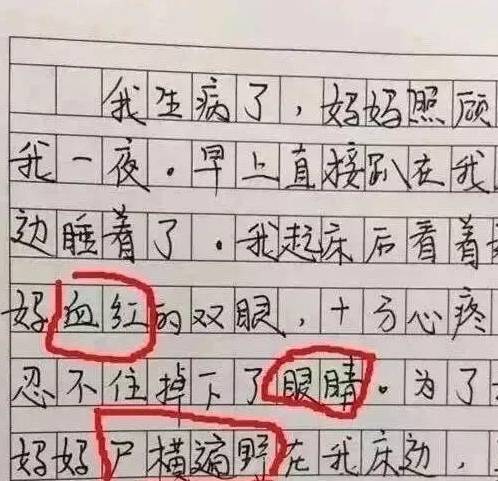 我生病了，妈妈照顾
我一夜。早上直接趴在我
边睡着了。我起床后看着
妈血红的双眼，十分心疼
忍不住掉下了眼睛。为了
妈妈尸横遍野在我床边，